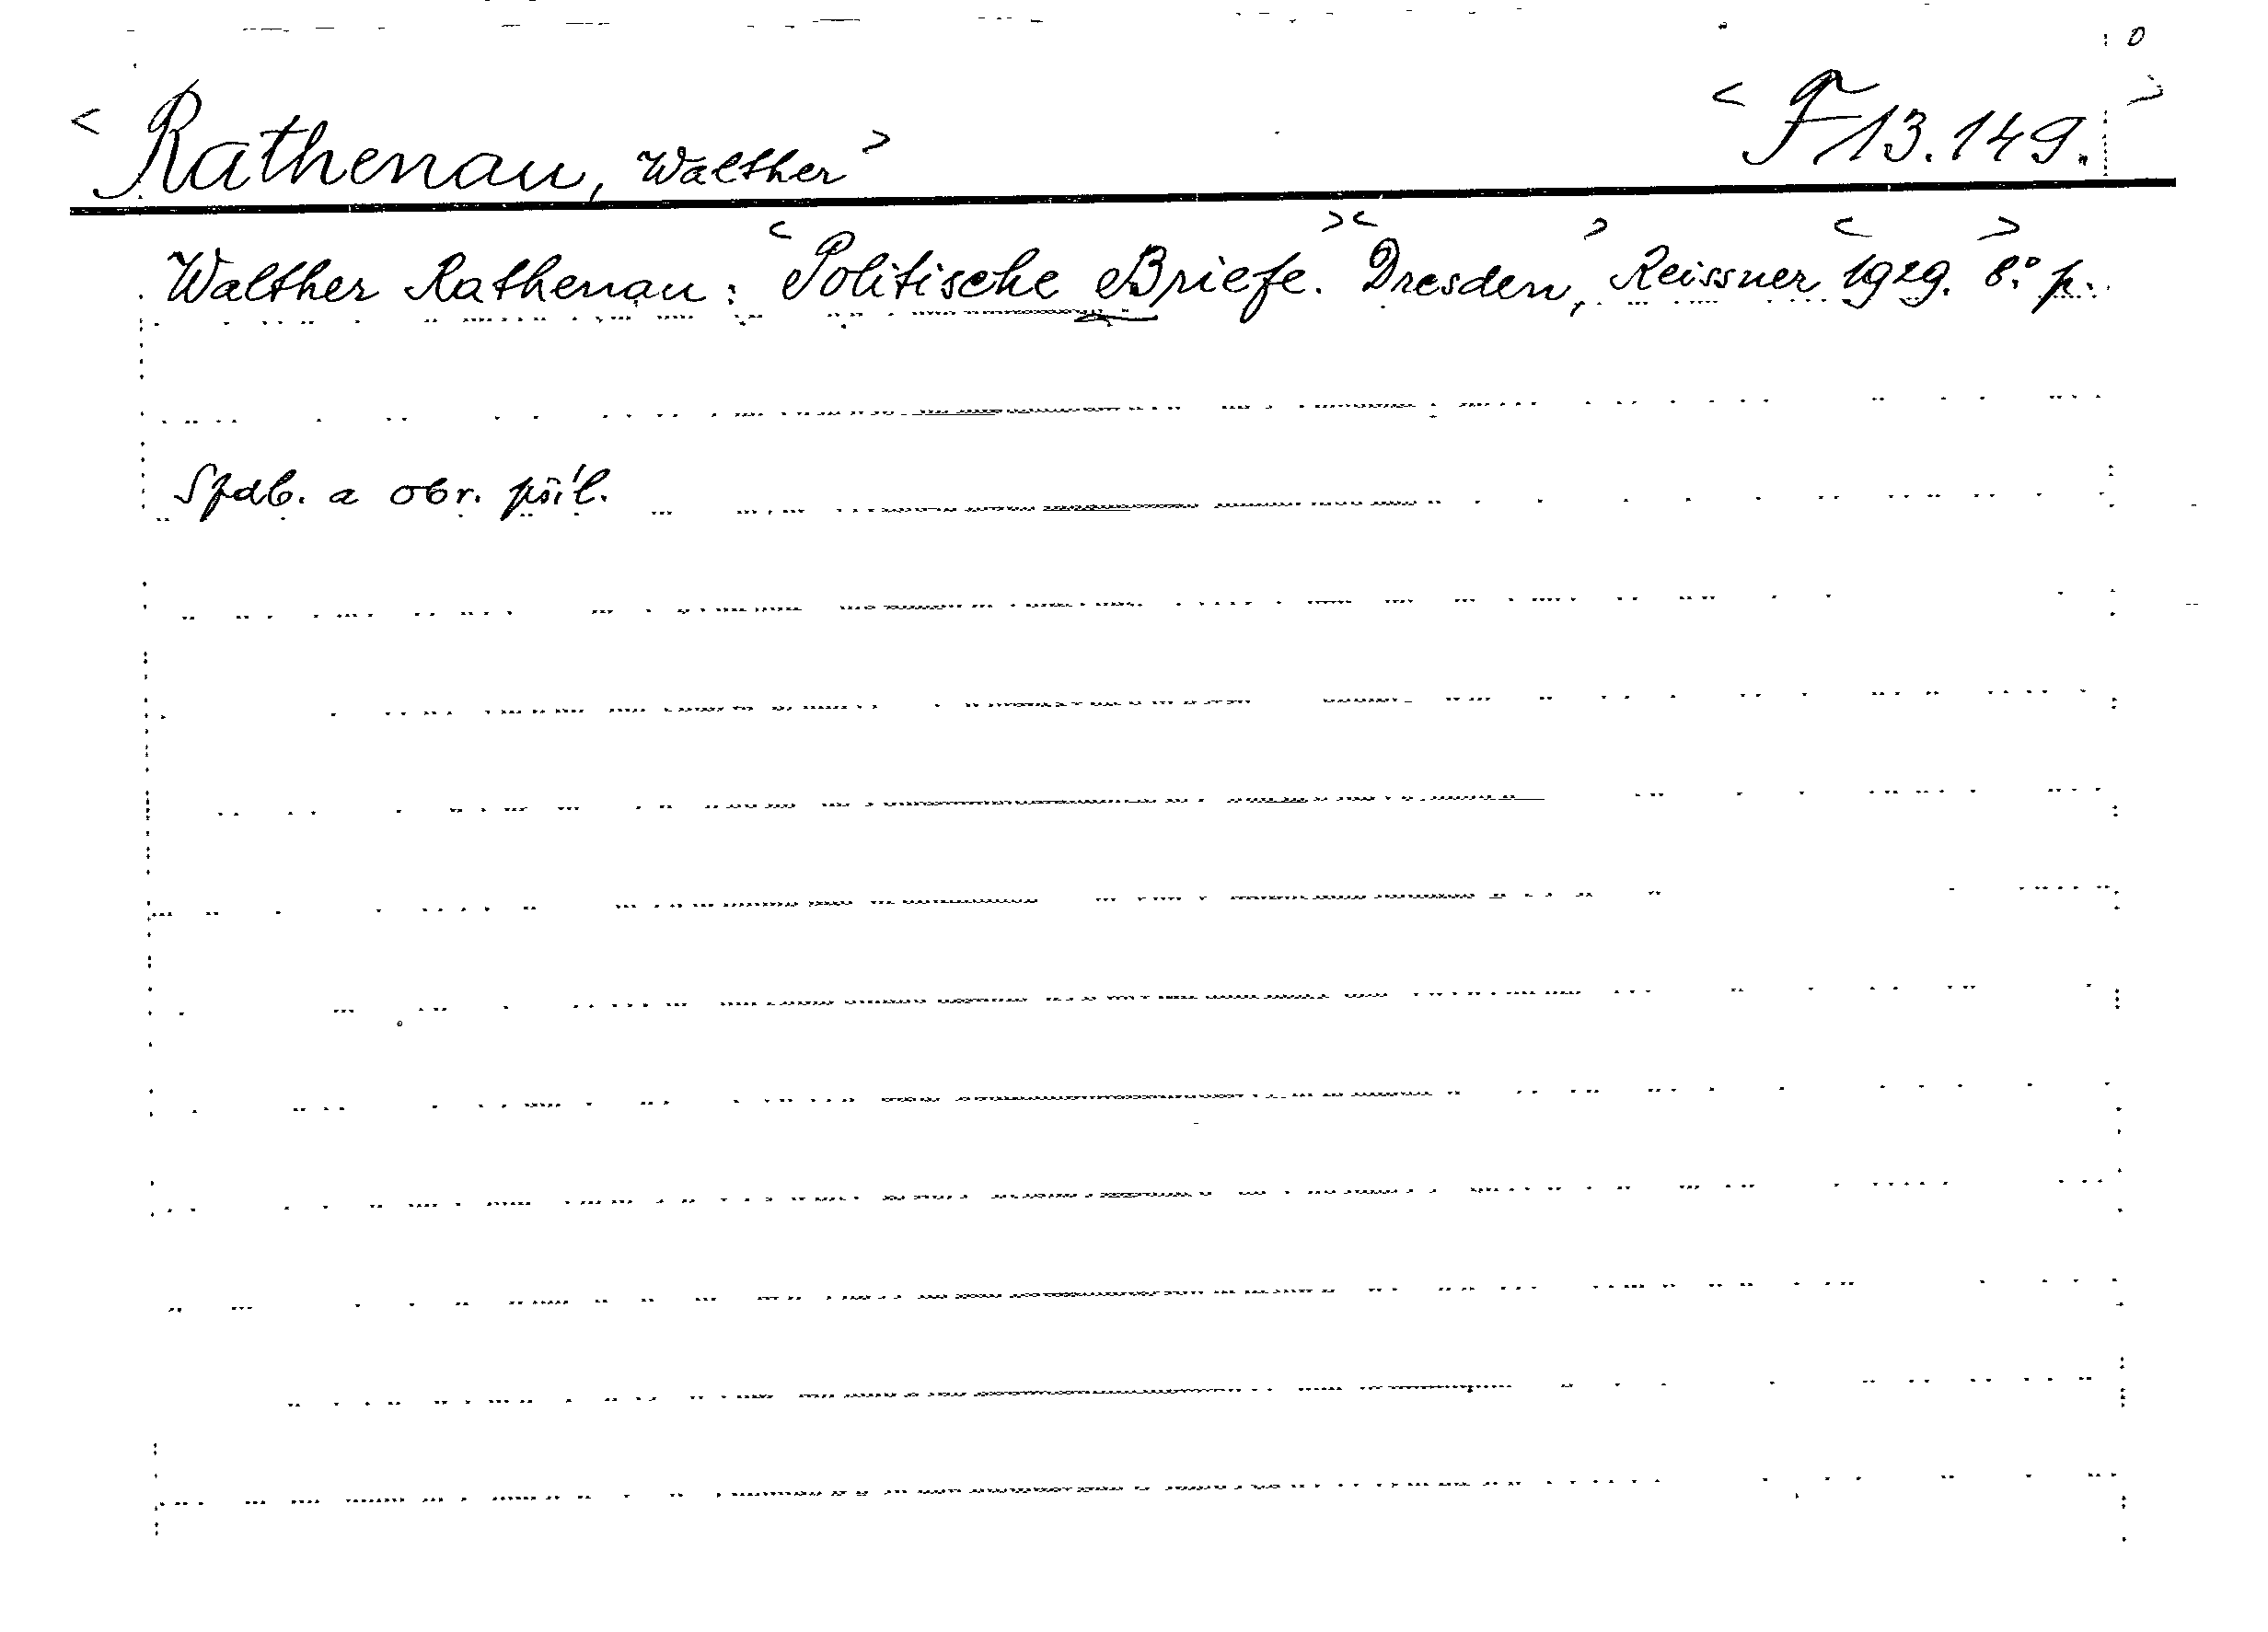 < Rathenau, Walther > < F 13.149. >
Walther Rathenau: < Politische Briefe. > < Dresden, > Reissner < 1929. > 8.° p.
a obr. příl.